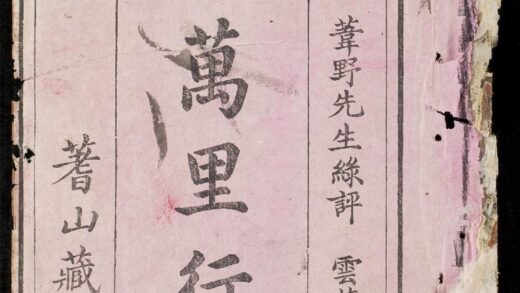 葦野先生綠評 雲
萬里行
蓍山藏